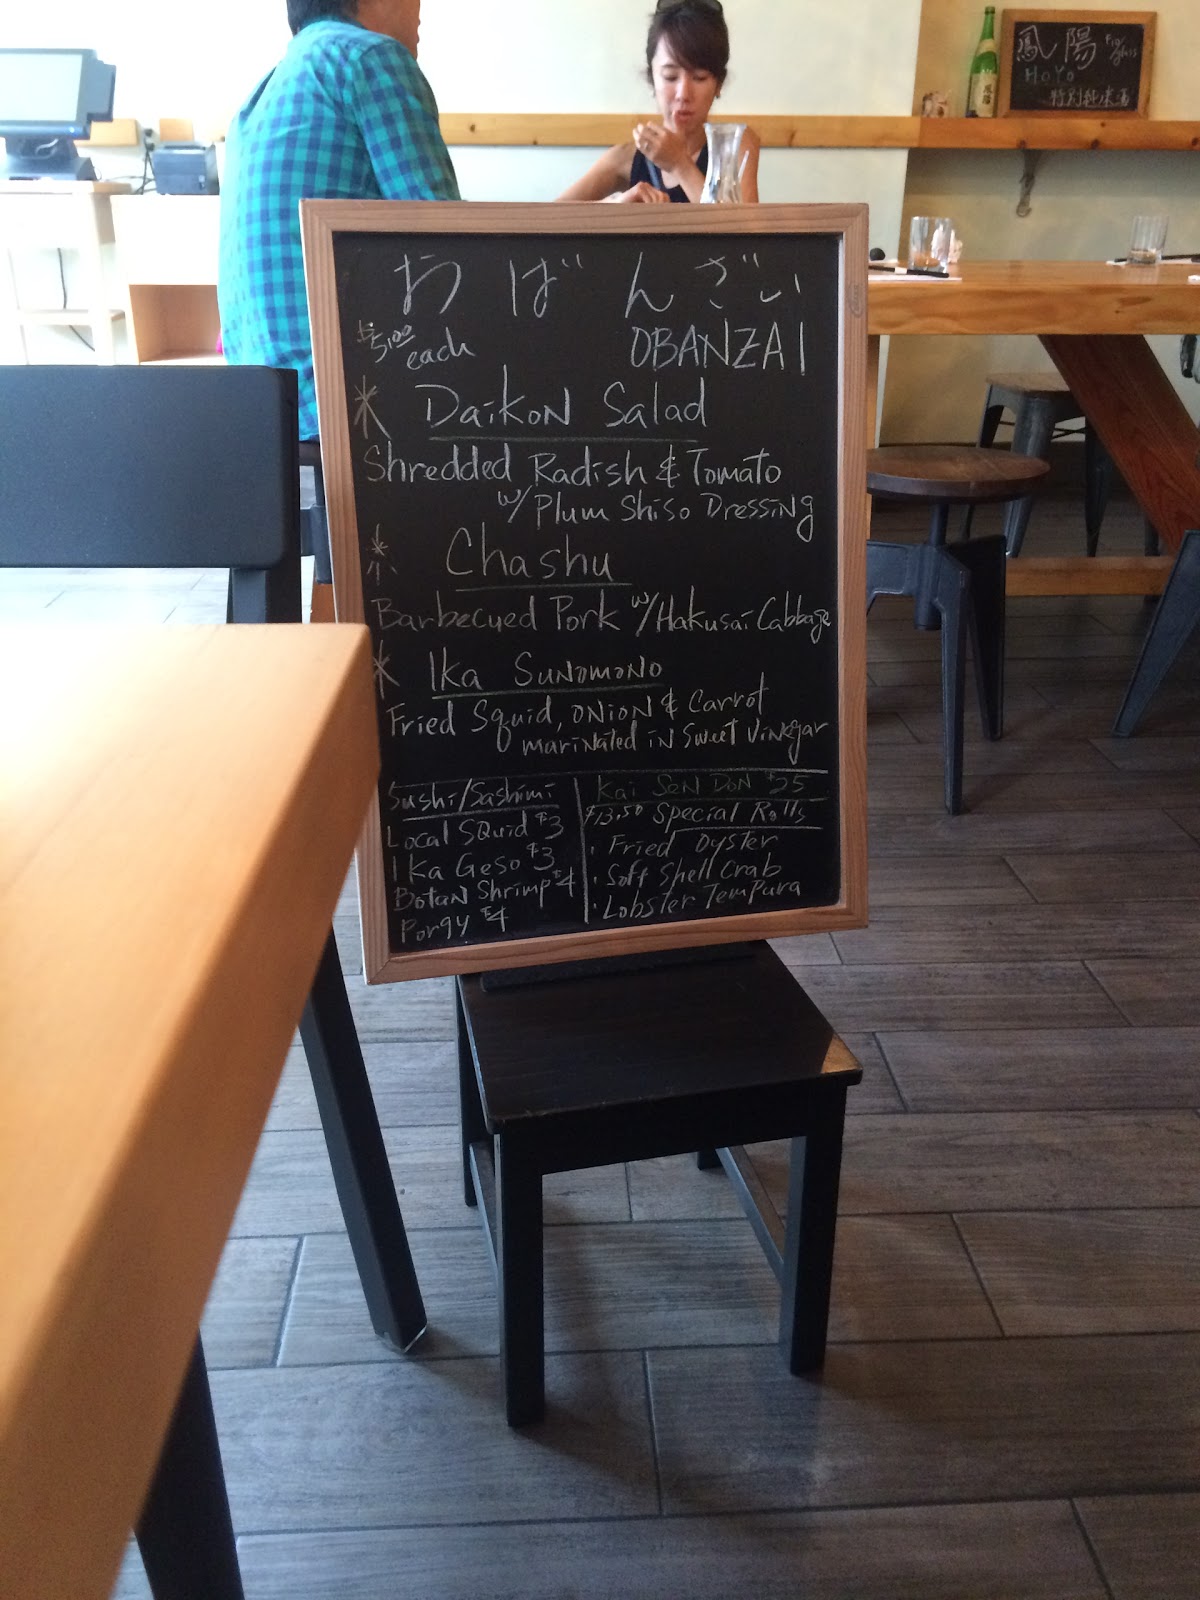 おばんざい
$5.00 each
OBANZAI
Daikon Salad
Shredded Radish & Tomato
w/ Plum Shiso Dressing
Chashu
Barbecued Pork w/ Hakusai Cabbage
Ika Sunomono
Fried Squid, Onion & Carrot
marinated in Sweet Vinegar
Sushi/Sashimi
Local Squid $3
Ika Geso $3
Botan Shrimp $4
Porgy $4
Kai Sen Don $25
$13.50 Special Rolls
· Fried Oyster
· Soft Shell Crab
· Lobster Tempura
鳳陽
glass
HoYo
特別純米酒